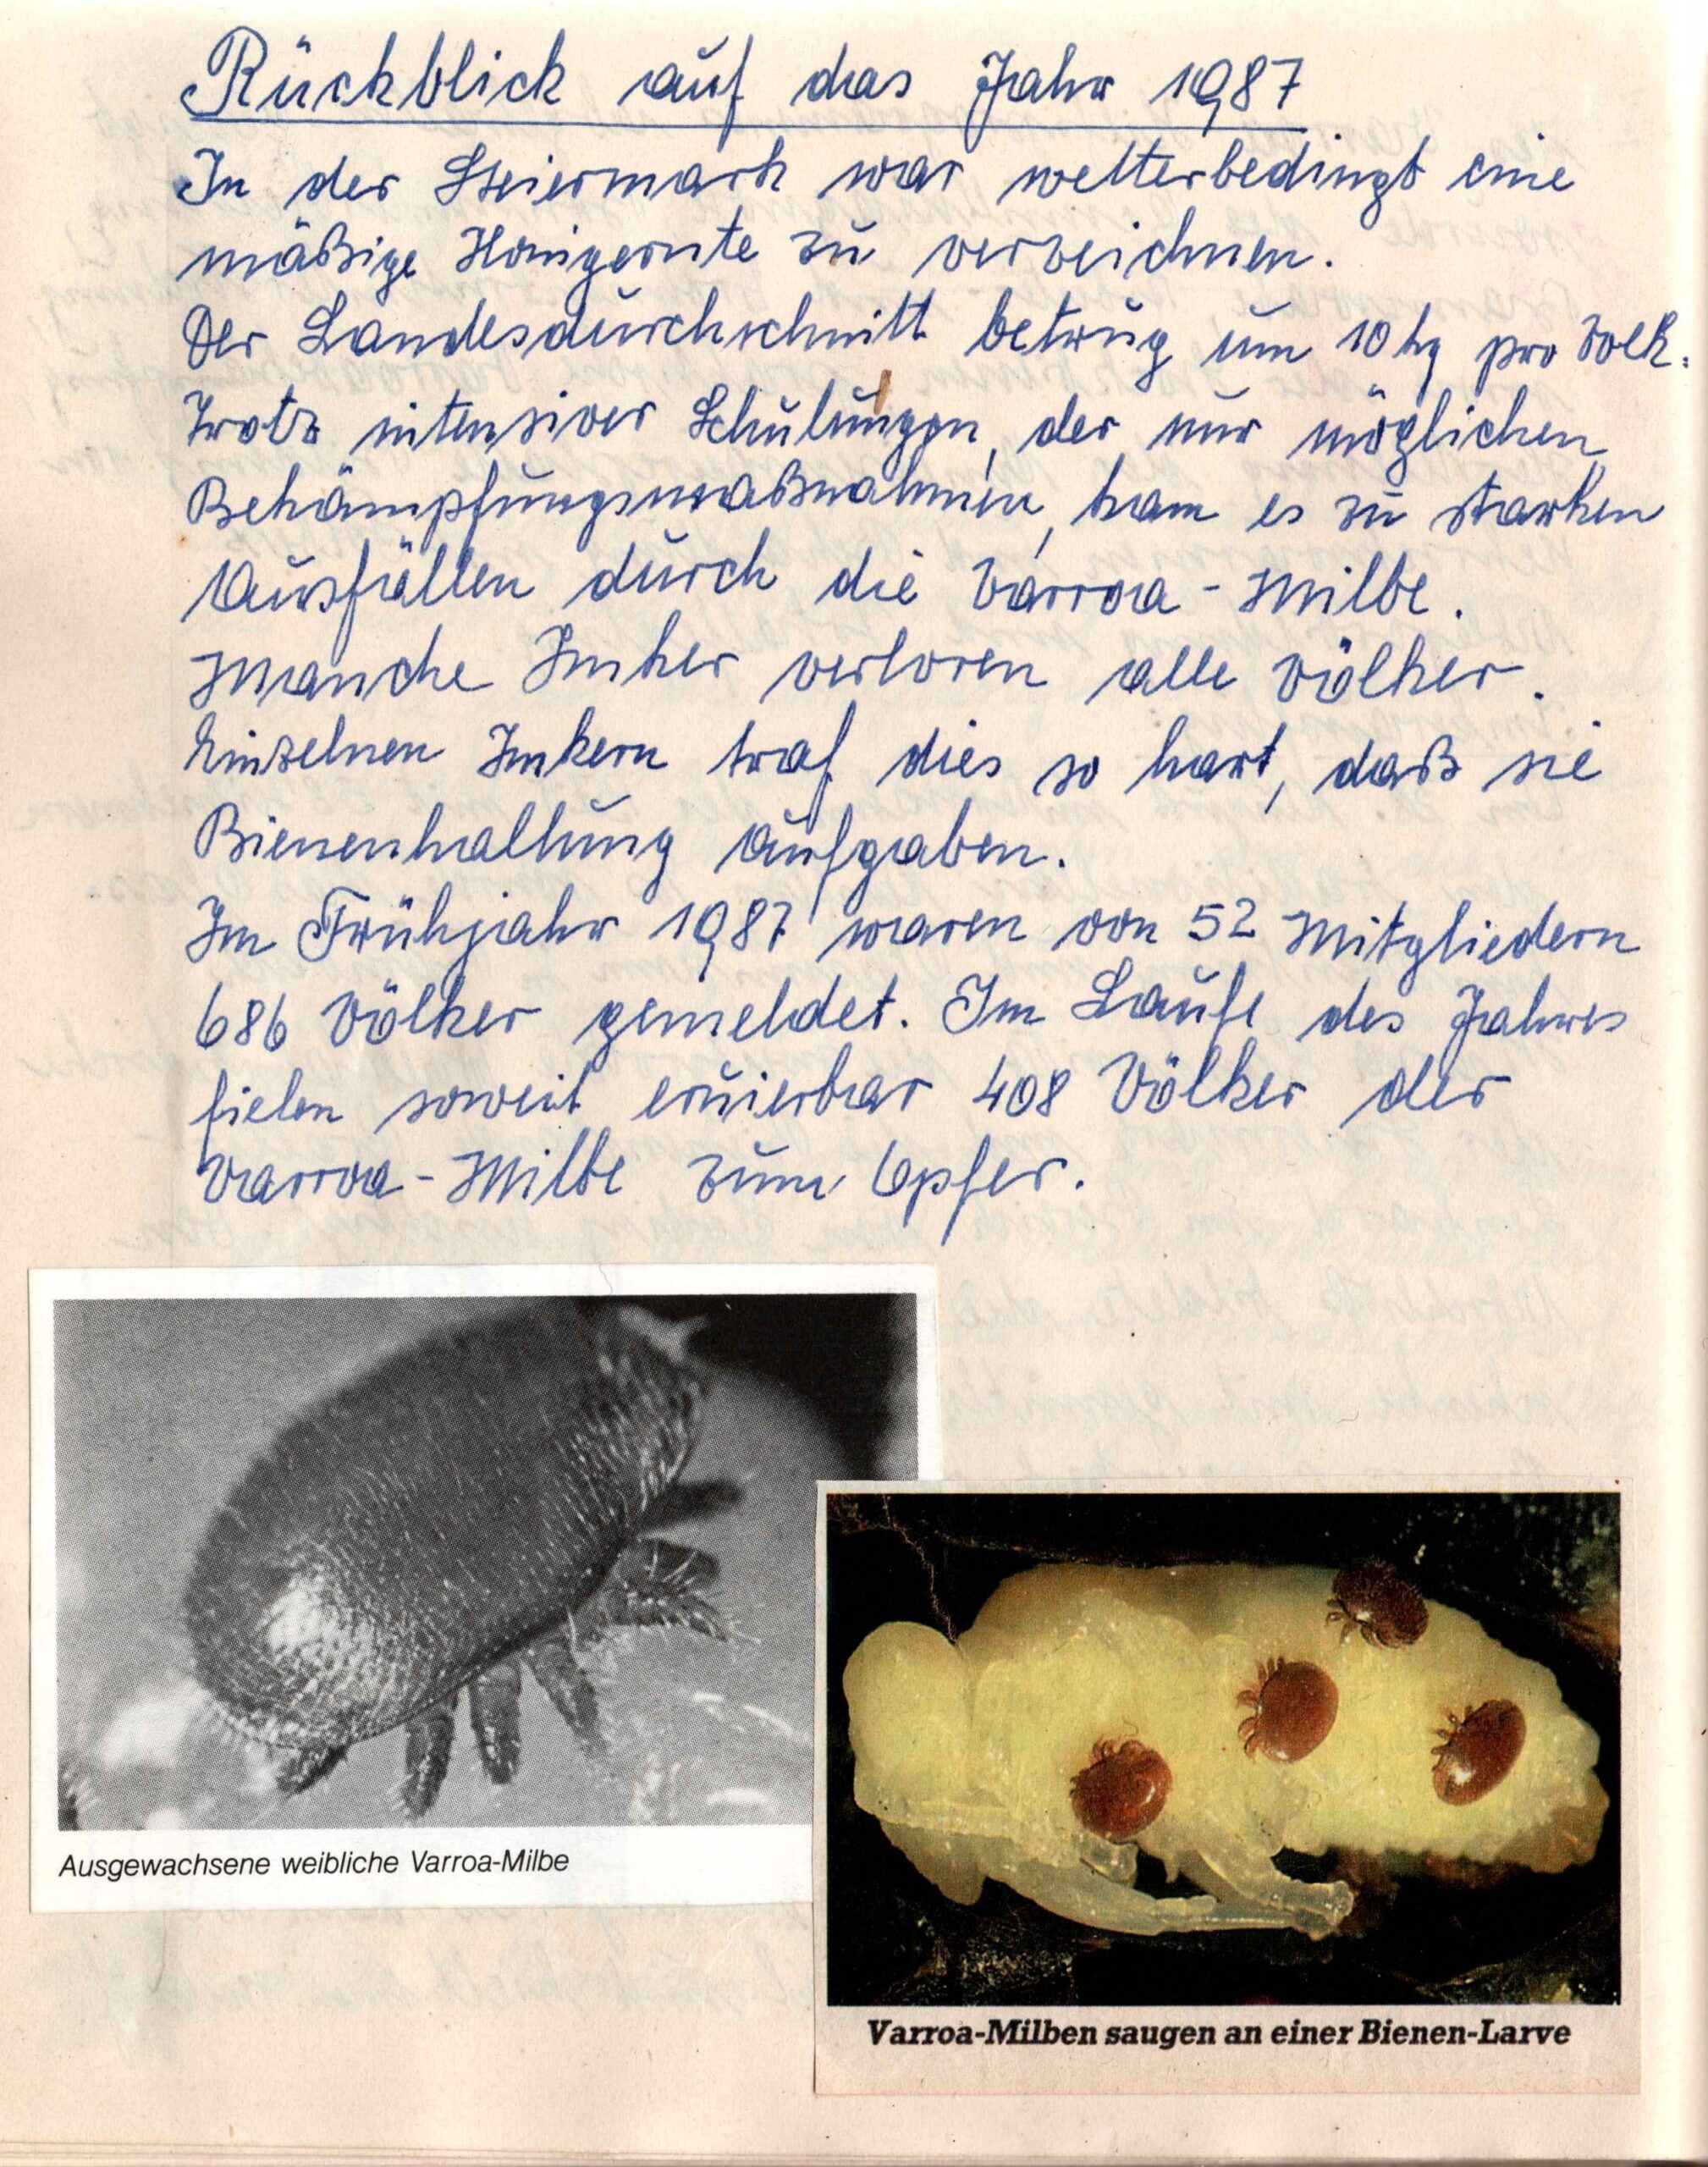 Rückblick auf das Jahr 1987
In der Steiermark war wetterbedingt eine
mäßige Honigernte zu verzeichnen.
Der Landesdurchschnitt betrug um 10 kg pro Volk.
Trotz intensiver Schulungen, der nur möglichen
Bekämpfungsmaßnahmen, kam es zu starken
Ausfällen durch die Varroa-Milbe.
Manche Imker verloren alle Völker.
Einzelnen Imkern traf dies so hart, daß sie
Bienenhaltung aufgaben.
Im Frühjahr 1987 waren von 52 Mitgliedern
686 Völker gemeldet. Im Laufe des Jahres
fielen soweit eruierbar 408 Völker der
Varroa-Milbe zum Opfer.
Ausgewachsene weibliche Varroa-Milbe
Varroa-Milben saugen an einer Bienen-Larve